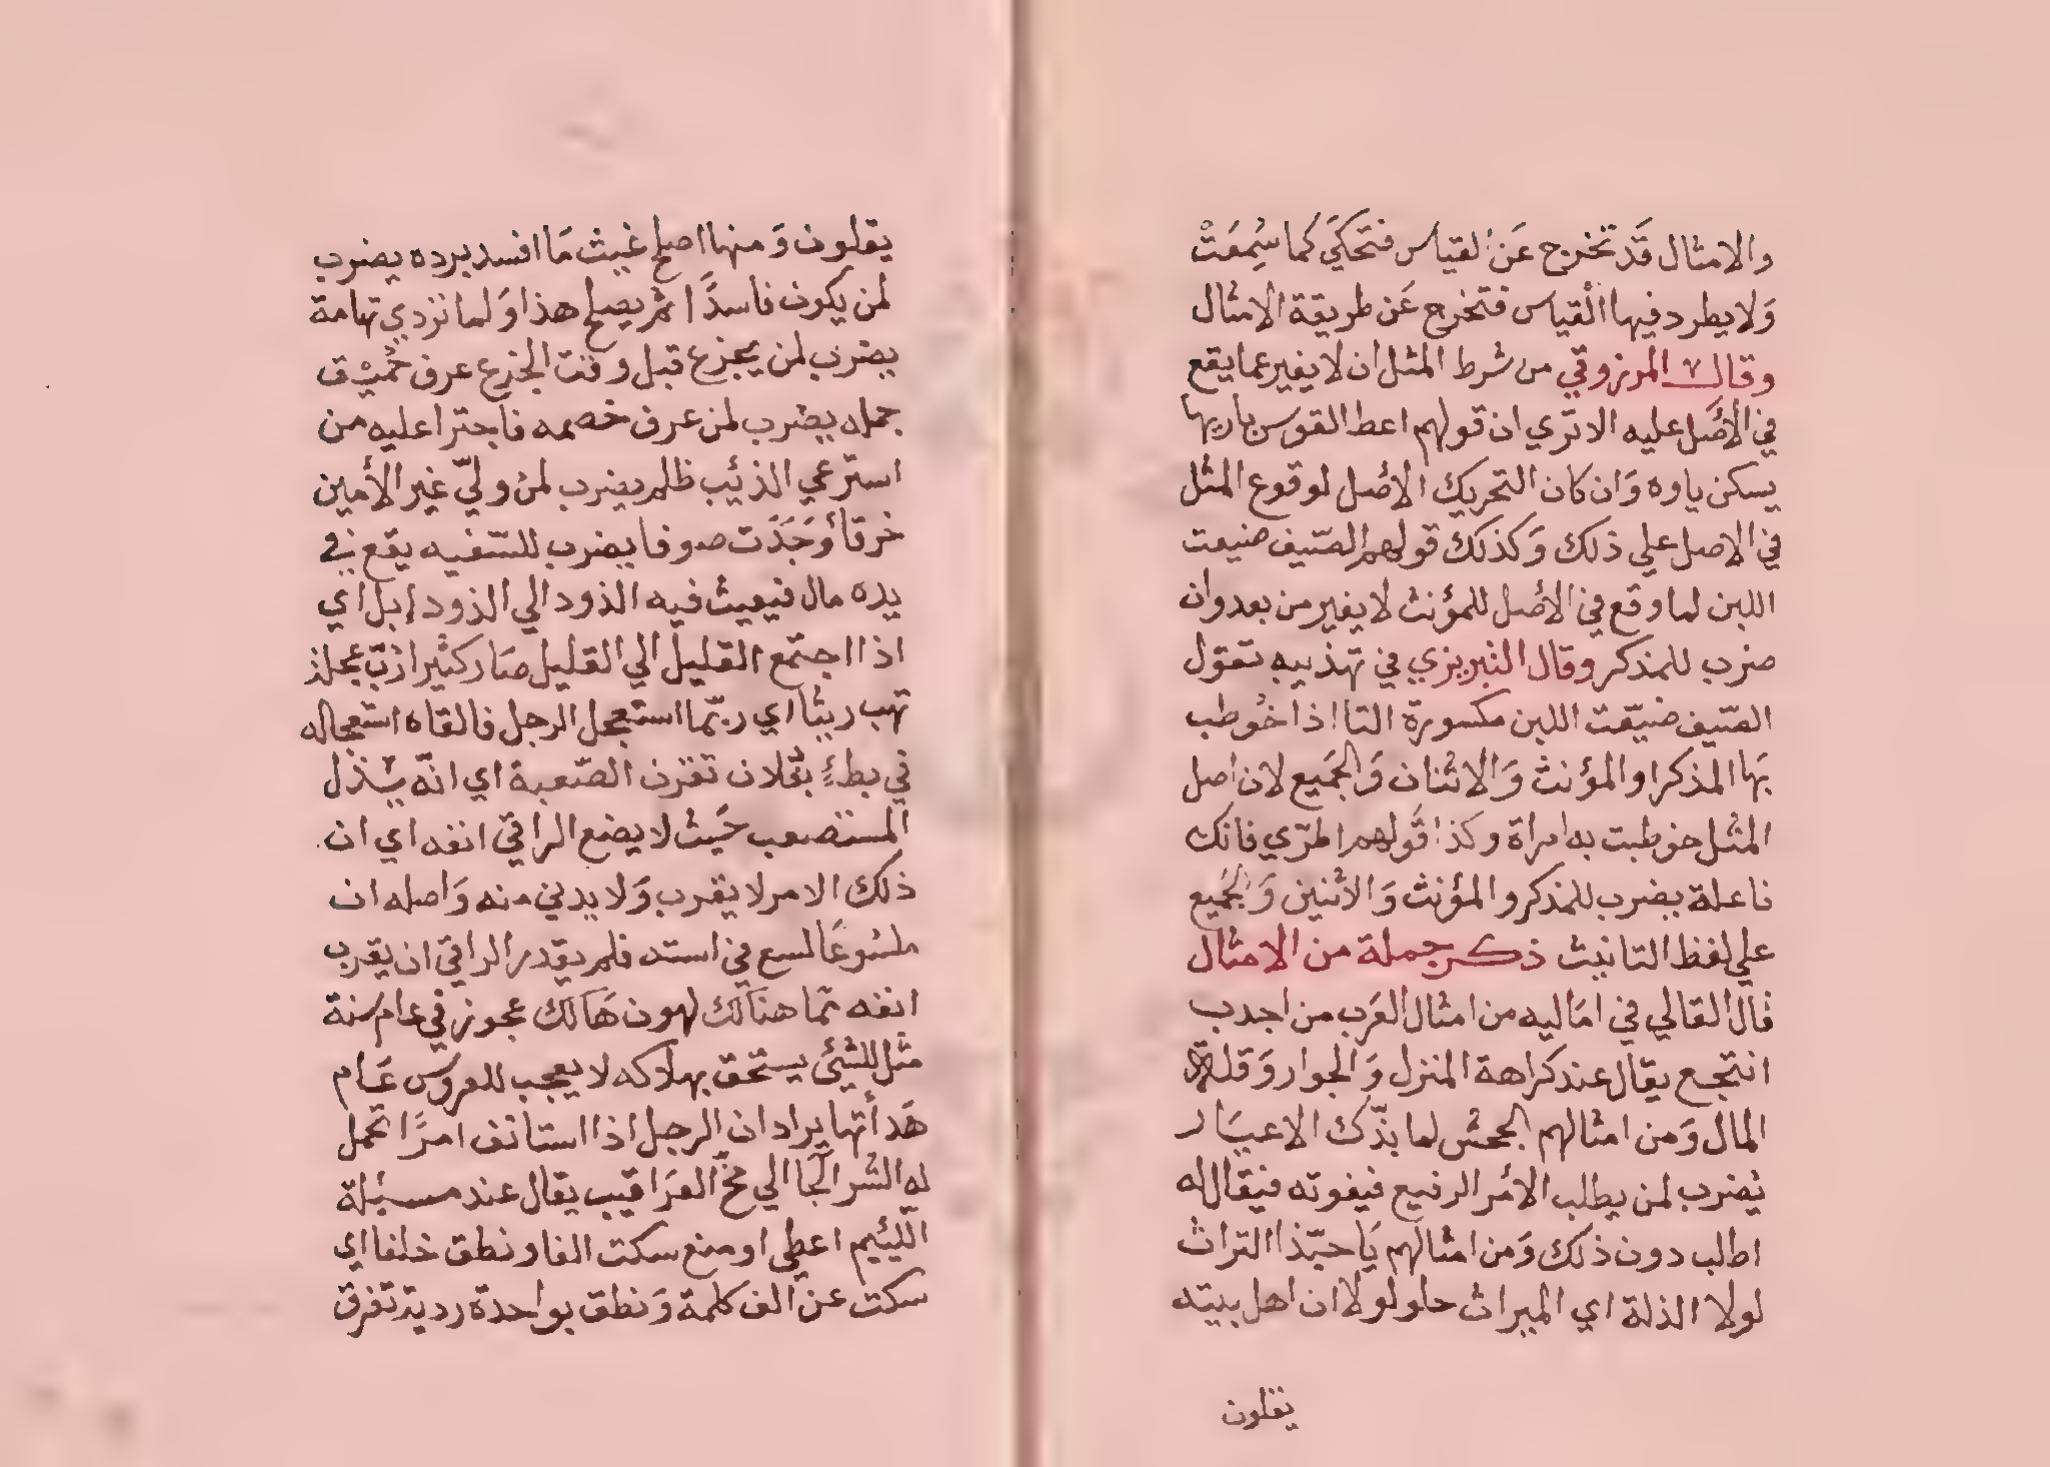 والامثال قَد تخرج عَن القياس فتحكَي كما سُمِعَتْ
وَلا يطرد فيها القياس فتخرج عَن طريقة الامثال
وقال المرزوقي من شرط المثل ان لا يغير عما يقع
في الأصل عليه الا تري ان قولهم اعط القوس باريها
يسكن ياوه وَان كان التحريك الأصل لوقوع المثل
في الاصل علي ذلك وَكذلك قولهم الصّيف ضيعت
اللبن لما وقع في الأصل للمؤنث لا يغير من بعد وان
ضرب للمذكر وقال التبريزي في تهذيبه تقول
الصّيف ضيّعت اللبن مكسورة التا اذا خُوطب
بهَا المذكر او المؤنث وَالاثنان وَالجَميع لان اصل
المثل خوطبت به امراة وكذا قَولهم اطرّي فانك
ناعلة يضرب للمذكر والمؤنث وَالاثنين وَالجَميع
علي لفظ التانيث ذكر جملة من الامثال
قال القالي في امَاليه من امثال العَرب من اجدب
انتجع يقال عند كراهة المنزل وَالجوار وَقلة
المال وَمن امثالهم الجحش لما بذّك الاعيَار
يُضرب لمن يطلب الأمر الرفيع فيفوته فيقال له
اطلب دون ذلك وَمن امثالهم يَا حبّذا التراث
لولا الذلة اي الميراث حلو لولا ان اهل بيته
يقلون
يقلون وَمنها اصلح غيث مَا افسد برده يضرب
لمن يكون فاسدًا ثم يصلح هذا وَلما تردي تهامة
يضرب لمن يجزع قبل وقت الجزع عرف حُميْق
جمله يضرب لمن عرف خصمه فاجترا عليه من
استرعي الذئب ظلم يضرب لمن وليّ غير الأمين
خرقأ وَجَدَت صوفا يضرب للسّفيه يقع في
يده مال فيعيث فيه الذود الي الذود إبل اي
اذا اجتمع القليل الي القليل صَار كثيرا ربّ عجلة
تهب ريثا اي ربّما استعجل الرجل فالقاه استعجاله
في بطءٍ بفلان تقرن الصّعبة اي انّه يذل
المستصعب حَيث لا يضع الراقي انفه اي ان
ذلك الامر لا يقرب وَلا يدني منه وَاصله ان
ملسُوعًا لسع في استه فلم يقدر الراقي ان يقرب
انفه ممّا هنالك لهون هَالك عجوز في عام سنة
مثل للشيئ يستحق بهلاكه لا يعجب للعروس عَام
هَدأتها يراد ان الرجل اذا استانف امرًا تجمل
له الشر الجَا الي مخّ العرَاقيب يقال عند مسئلة
اللّئيم اعطي او منع سكت الفا ونطق خلفا اي
سكت عن الف كلمة وَنطق بواحدة ردية تفرق